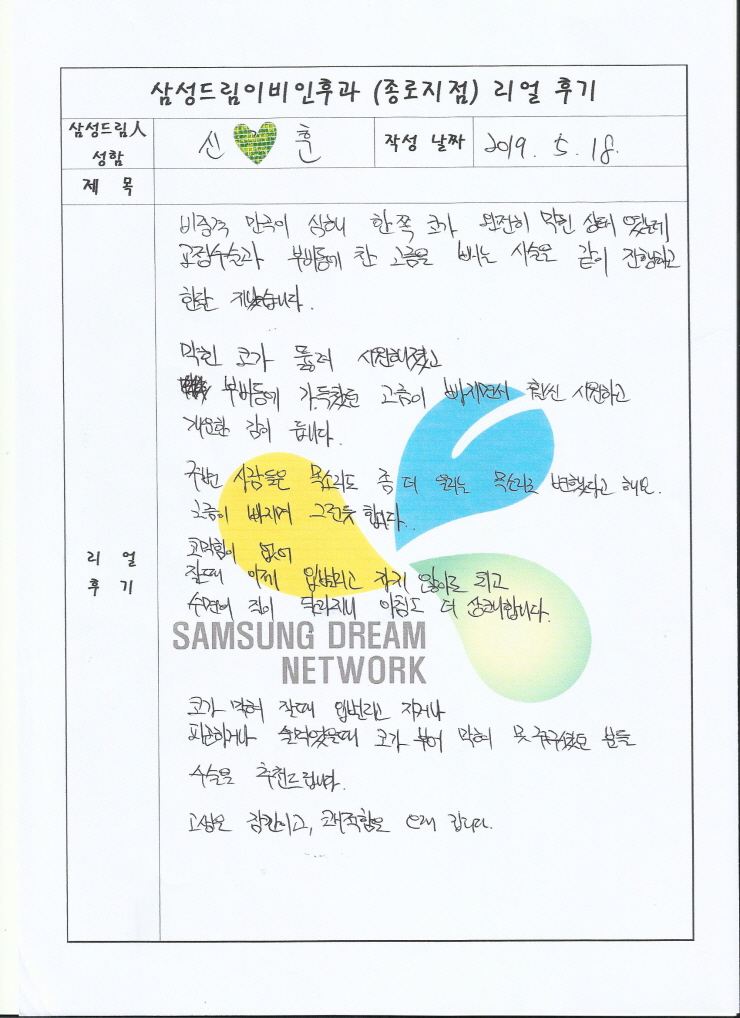 삼성드림이비인후과 (종로지점) 리얼 후기
삼성드림人
성함
신 훈
작성 날짜
2019. 5. 18.
제 목
리 얼
후 기
비중격 만곡이 심해 한쪽 코가 완전히 막힌 상태 였는데
교정수술과 부비동에 찬 고름을 빼는 시술을 같이 진행하고
한달 지났습니다.
막힌 코가 뚫려 시원해졌고
부비동에 가득찼던 고름이 빠지면서 훨씬 시원하고
개운한 감이 듭니다.
주변 사람들은 목소리도 좀 더 울리는 목소리로 변했다고 해요.
고름이 빠지며 그런듯 합니다.
코막힘이 없어
잘때 이제 입벌리고 자지 않아도 되고
수면의 질이 달라지니 아침도 더 상쾌합니다.
SAMSUNG DREAM
NETWORK
코가 막혀 잘때 입벌리고 자거나
피곤하거나 술먹었을때 코가 부어 막혀 못 주무셨던 분들
수술을 추천드립니다.
고생은 잠깐이고, 쾌적함은 오래 갑니다.